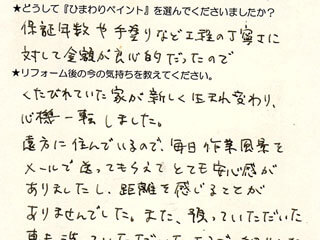 ★どうして『ひまわりペイント』を選んでくださいましたか?
保証年数や手塗りなど工程の丁寧さに
対して金額が良心的だったので
★リフォーム後の今の気持ちを教えてください。
くたびれていた家が新しく生まれ変わり、
心機一転しました。
遠方に住んでいるので、毎日作業風景を
メールで送ってもらえてとても安心感が
ありましたし、距離を感じることが
ありませんでした。また、預っていただいた